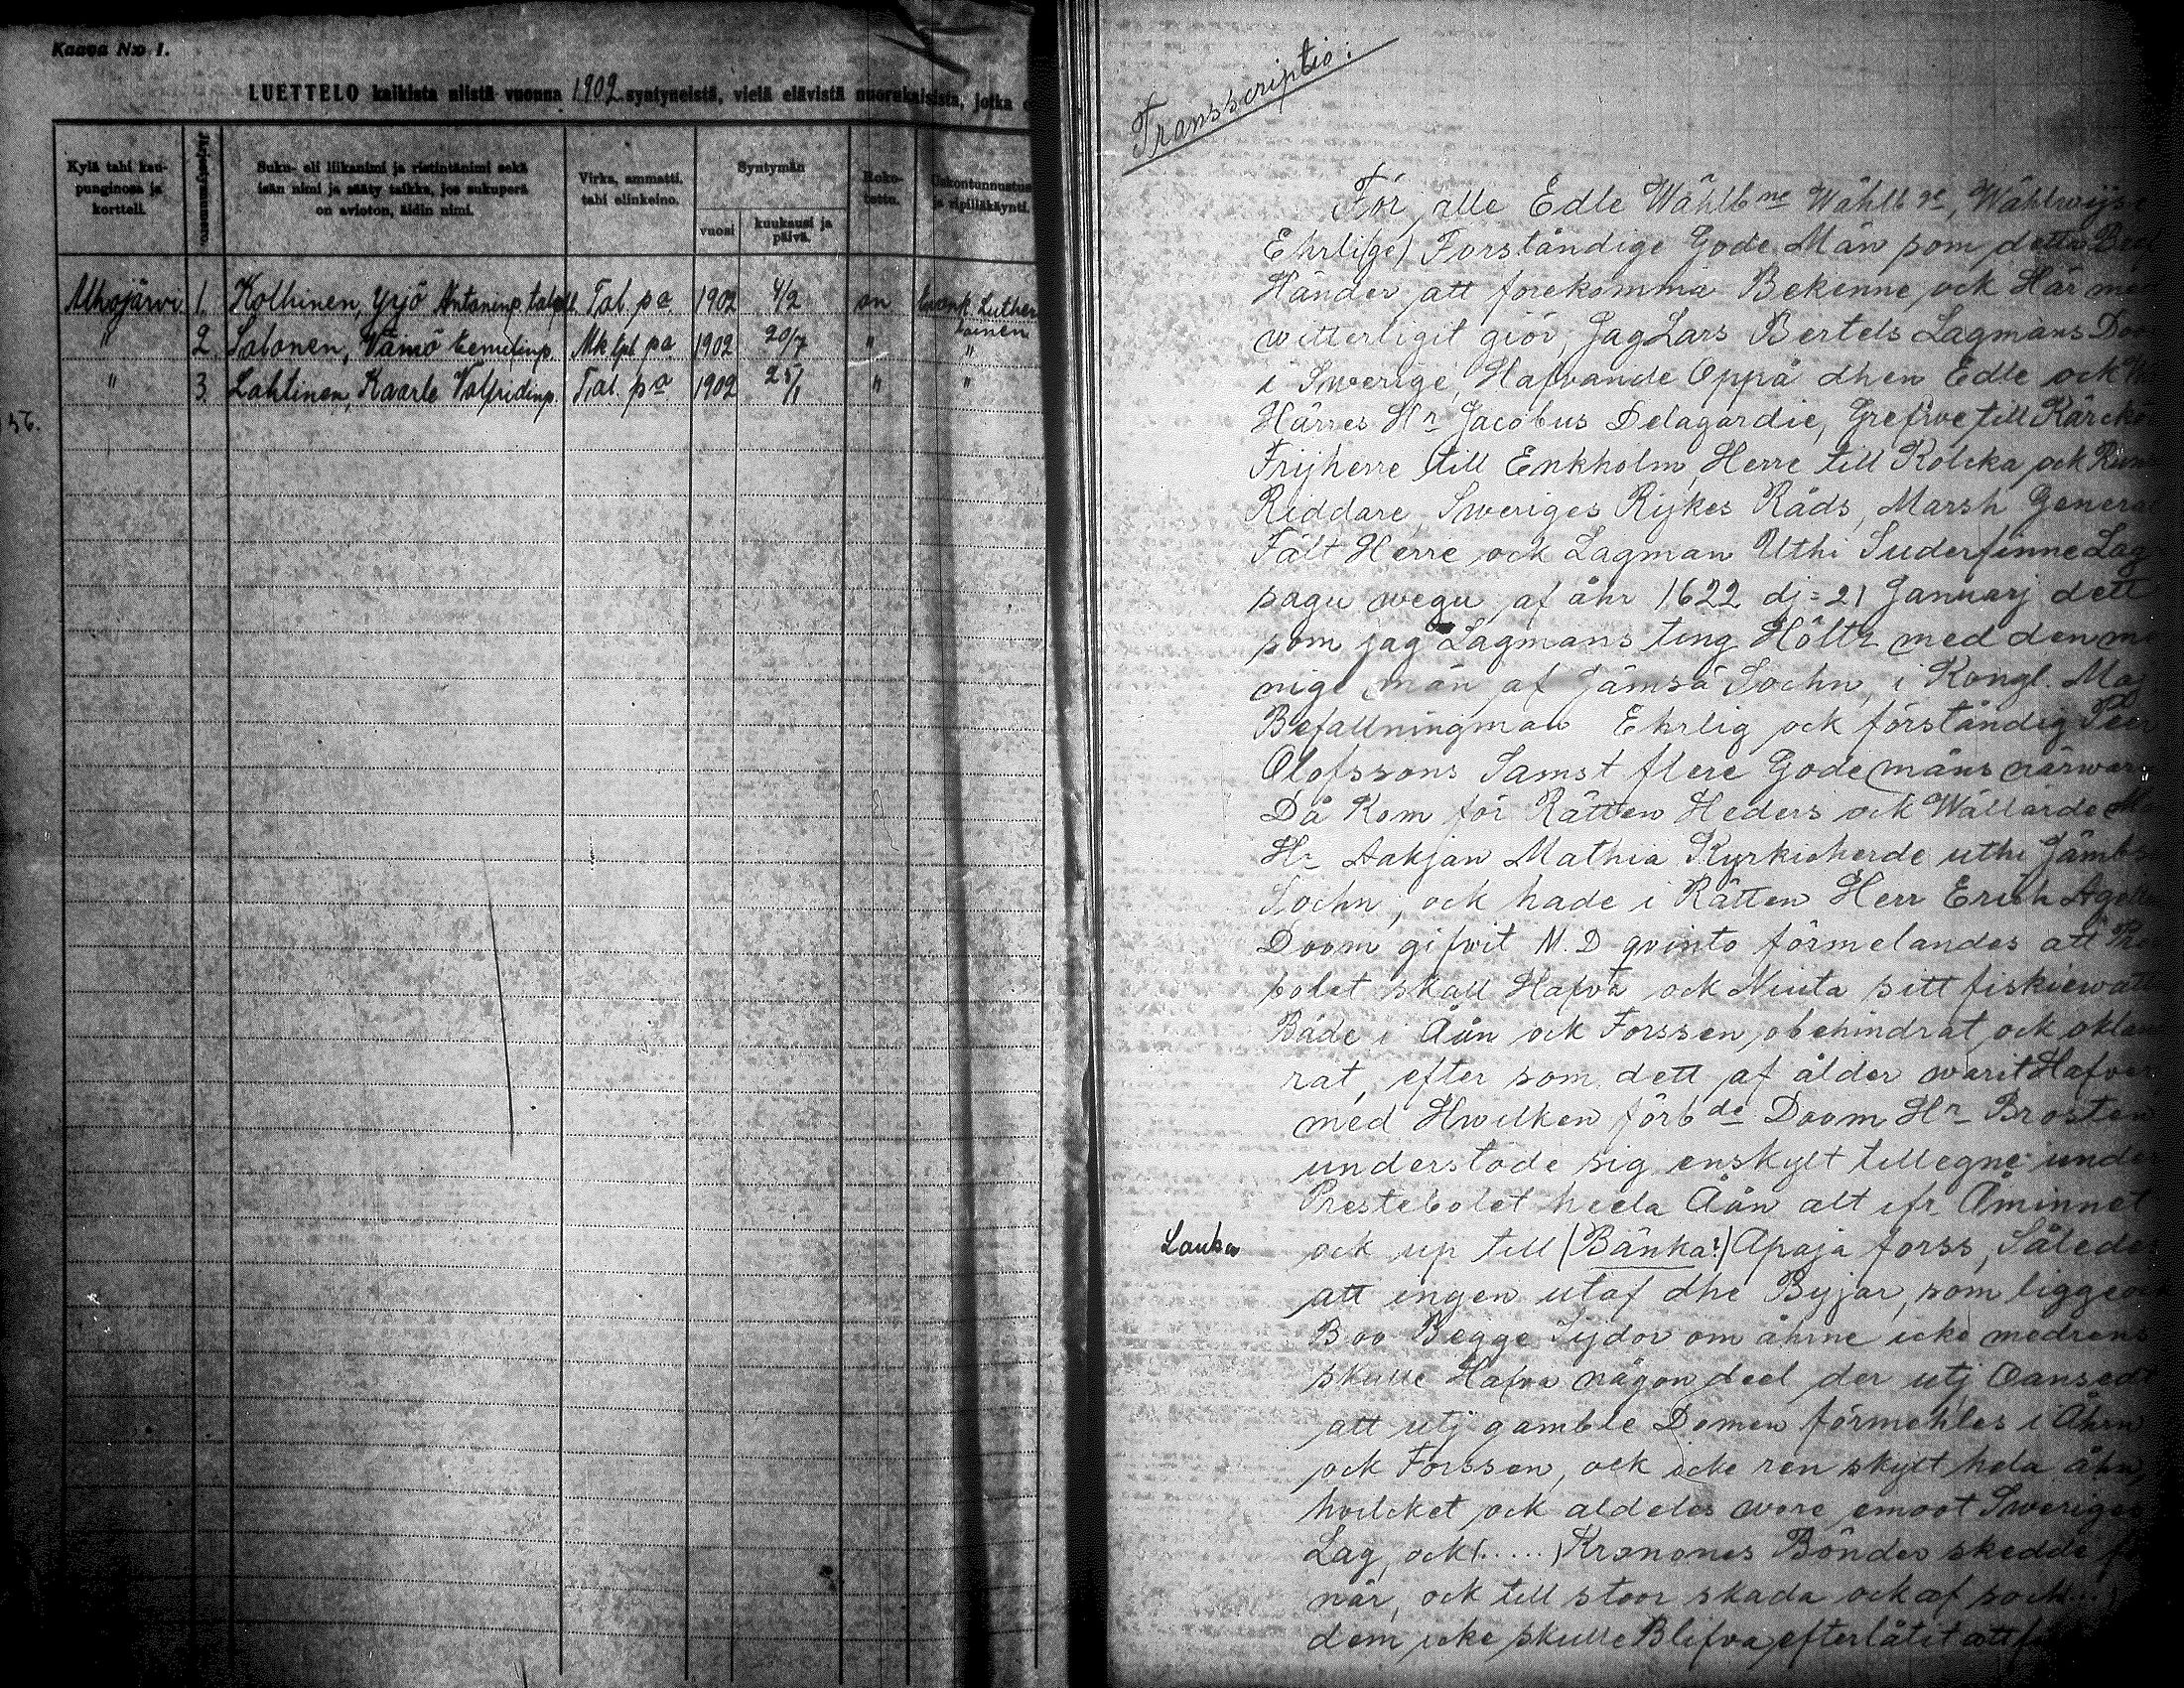 Kaava N:o 1.
LUETTELO kaikista niistä vuonna 1902 syntyneistä, vielä elävistä nuorukaisista, jotka
Kylä tahi kau-
punginosa ja
kortteli.
Järjestysnumero.
Suku- eli liikanimi ja ristintänimi sekä
isän nimi ja sääty taikka, jos sukuperä
on avioton, äidin nimi.
Virka, ammatti,
tahi elinkeino.
Syntymän
vuosi
kuukausi ja
päivä.
Roko-
tettu.
Uskontunnustus
ja ripilläkäynti.
Alhojärvi 1. Kolhinen, Yrjö Antaninp. Tal. pa 1902 4/2 on Luther
lainen
" 2. Salonen, Väinö Eemelinp. Mk pa 1902 20/7 " "
" 3. Lahtinen, Kaarle Valfridinp. Tal. pa 1902 25/1 " "
56.
Transscriptio:
För alle Edle Wählbne Wählb
Ehrli(ge) Forståndige Gode Män som detta
Händer att forekomma Bekenne ock Här med
witterligit giör, Jag Lars Bertels Lagmans
i Swerige, Hafvande Oppå dhen Edle ock
Härres Hr Jacobus Delagardie, Grefwe till
Frijherre till Enkholm, Herre till Kolcka ock
Riddare, Sweriges Rijkes Råds, Marsh, General
Fält Herre ock Lagman Uthi Suderfinne Lag
sagu wegu af åhr 1622 dj = 21 Januarj dett
som jag Lagmans ting Höltz med den
nige män af Jämsä Sochn, i Kongl. Maj
Befallningman Ehrlig ock förståndig Peer
Olofssons Samst flere Gode mäns närwar
Då Kom för Rätten Heders ock Wällärde
Hr Aakjan Mathia Kyrkioherde uthi
Sochn, ock hade i Rätten Herr Erich
Doom gifwit M.D qvinto förmelandes att
bolet skall Hafva ock Niuta sitt
Både i Åån ock Forssen, obehindrat ock
rat, efter som dett af ålder warit
med Hwilken förbde Doom Hr Brosten
understode sig enskylt tillegne under
Prestebolet heela Åån alt ifr Åminnet
Lauka ock up till (Bänka?) Apaja forss,
att ingen utaf dhe Byjar, som
Boo Begge Sydor om åhrne icke
skulle Hafva någon deel der utj
att utj gamble Domen förmehles i Åhrn
ock Forssen, ock icke ren skyll hela åhn,
hvilcket ock aldeles wore emoot Sweriges
Lag, ock (.....) Kronones Bönder skedde
när, ock till stoor skada ock af
dem icke skulle Blifva efterlåtit att